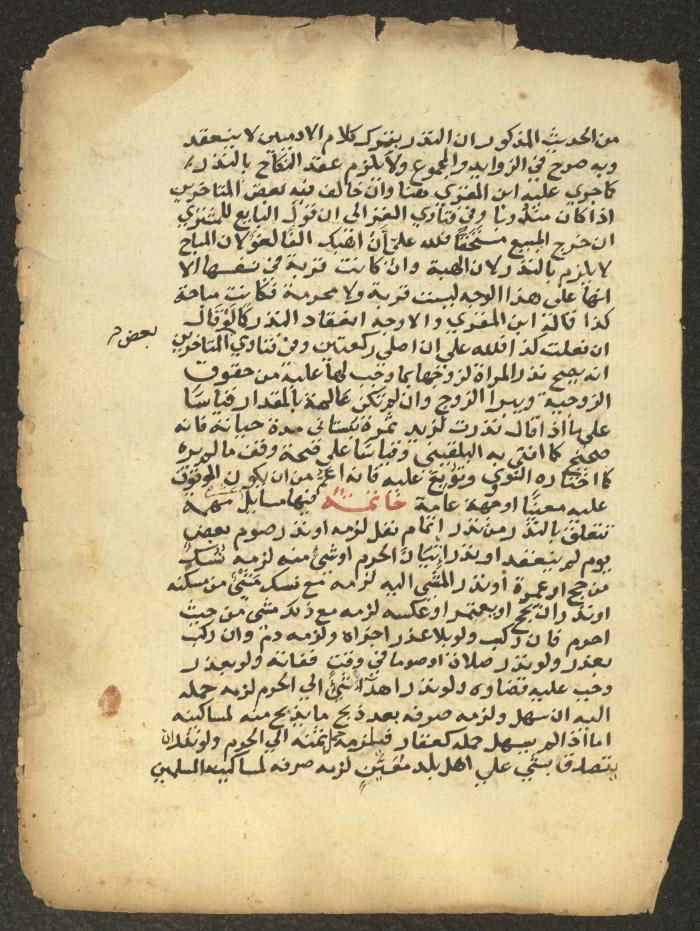 من الحديث المذكور ان النذر بترك كلام الادميين لا ينعقد
وبه صرح في الزوايد والمجموع ولا يلزم عقد النكاح بالنذر
كما جري عليه ابن المقري هنا وان خالف فيه بعض المتاخرين
اذا كان مندوبا وفي فتاوي الغزالي ان قول البايع للمشتري
ان خرج المبيع مستحقا فلله علي أن اهبك الفا لغو لان المباح
لا يلزم بالنذر لان الهبة وان كانت قربة في نفسها الا
انها علي هذا الوجه ليست قربة ولا محرمة فكانت مباحة
كذا قاله ابن المقري والاوجه انعقاد النذر كما لو قال
ان فعلت كذا فلله علي ان اصلي ركعتين وفي فتاوي المتاخرين
بعض
انه يصح نذر المراة لزوجها بما وجب لها عليه من حقوق
الزوجية ويبرا الزوج وان لم تكن عالمة بالمقدار قياسا
علي ما اذا قال نذرت لزيد ثمرة بستاني مدة حياته فانه
صحيح كما افتي به البلقيني وقياسا علي صحة وقف ما لم يره
كما اختاره النووي وتوبع عليه فانه اعم من ان يكون الموقوف
عليه معينا او جهة عامة خاتمة فيها مسايل مهمة
تتعلق بالنذر من نذر اتمام نفل لزمه او نذر صوم بعض
يوم لم ينعقد او نذر اتيان الحرم او شئ منه لزمه نسك
من حج او عمرة او نذر المشي اليه لزمه مع نسك مشي من مسكنه
او نذر ان يحج او يعتمر او عكسه لزمه مع ذلك مشي من حيث
احرم فان ركب ولو بلا عذر اجزاه ولزمه دم وان ركب
بعذر ولو نذر صلاة او صوما في وقت ففاته ولو بعذر
وجب عليه قضاوه ولو نذر اهدا شئ الي الحرم لزمه حمله
اليه ان سهل ولزمه صرفه بعد ذبح ما يذبح منه لمساكينه
اما اذا لم يسهل حمله كعقار فيلزمه حمل ثمنه الي الحرم ولو نذر ان
يتصدق بشي علي اهل بلد معين لزمه صرفه لمساكينه المسلمين